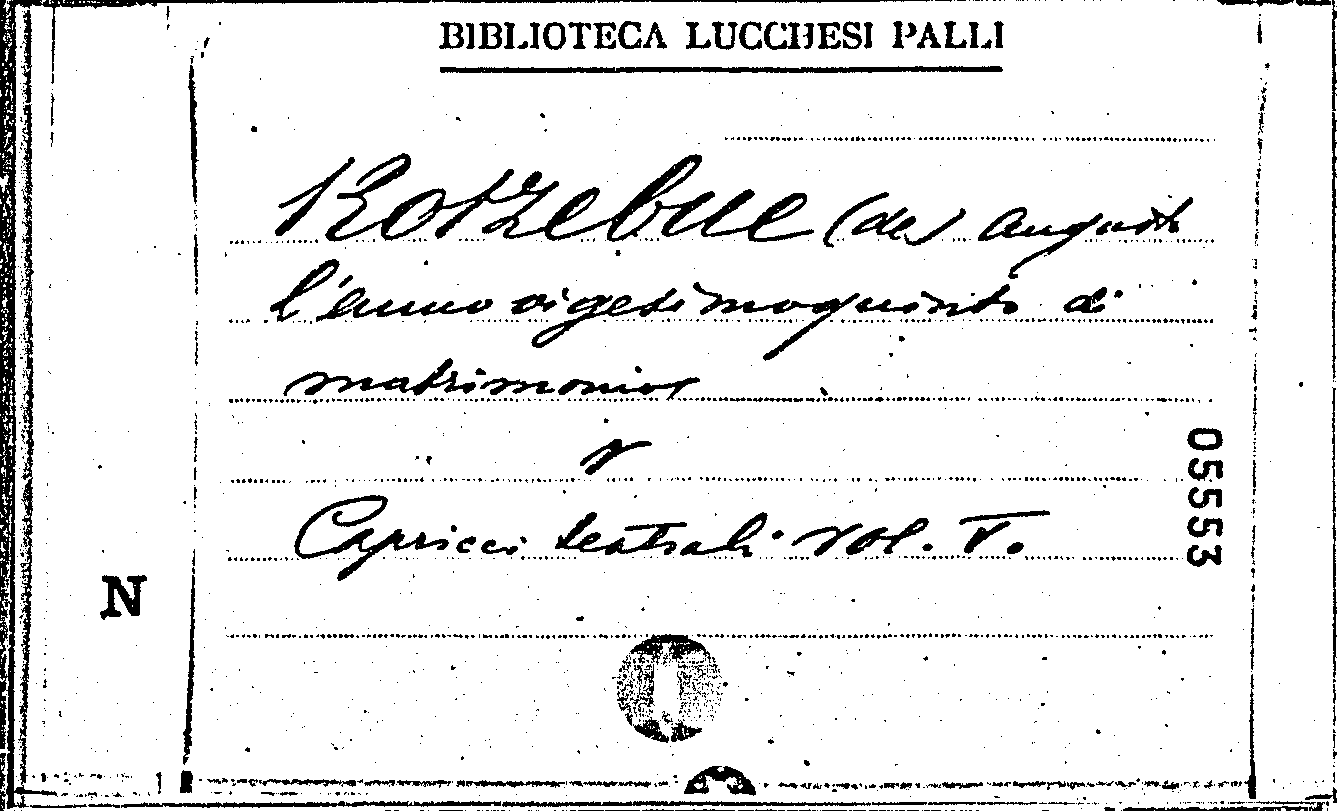 BIBLIOTECA LUCCHESI PALLI
Kotzebue (de) Augusto
L'anno vigesimoquinto di
matrimonio
Capricci teatrali vol. V.
05553
N